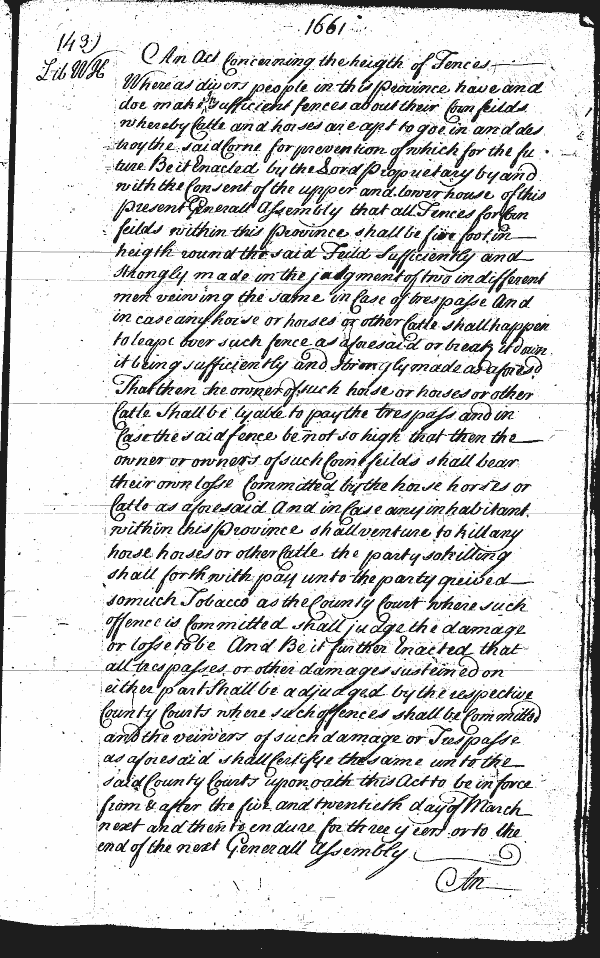 1661
143)
Lib WH
An Act Concerning the heigth of Fences
Whereas divers people in this Province have and
doe make insufficient fences about their Corn feilds
whereby Catle and horses are apt to goe in and des
troy the said Corne for prevention of which for the fu
ture Be it Enacted by the Lord Proprietary by and
with the Consent of the upper and lower house of this
present Generall Assembly that all Fences for Corn
feilds within this Province shall be five foot in
heigth round the said Feild Sufficiently and
strongly made in the judgment of two indifferent
men veiwing the same in Case of trespasse And
in case any horse or horses or other Catle shall happen
to leape over such fence as aforesaid or break it down
it being sufficiently and strongly made as aforesd
That then the owner of such horse or horses or other
Catle Shall be lyable to pay the trespass and in
Case the said fence be not so high that then the
owner or owners of such Corn feilds shall bear
their own losse Committed by the horse horses or
Catle as aforesaid And in Case any inhabitant
within this Province shall venture to kill any
horse horses or other Catle the party so killing
shall forthwith pay unto the party greived
somuch Tobacco as the County Court where such
offence is Committed shall judge the damage
or losse to be And Be it further Enacted that
all trespasses or other damages susteined on
either part Shall be adjudged by the respective
County Courts where such offences shall be Committed
and the veiwers of such damage or Trespasse
as aforesaid shall Certifye the same unto the
said County Courts upon oath this Act to be in force
from & after the five and twentieth day of March
next and then to endure for three yeers or to the
end of the next Generall Assembly
An